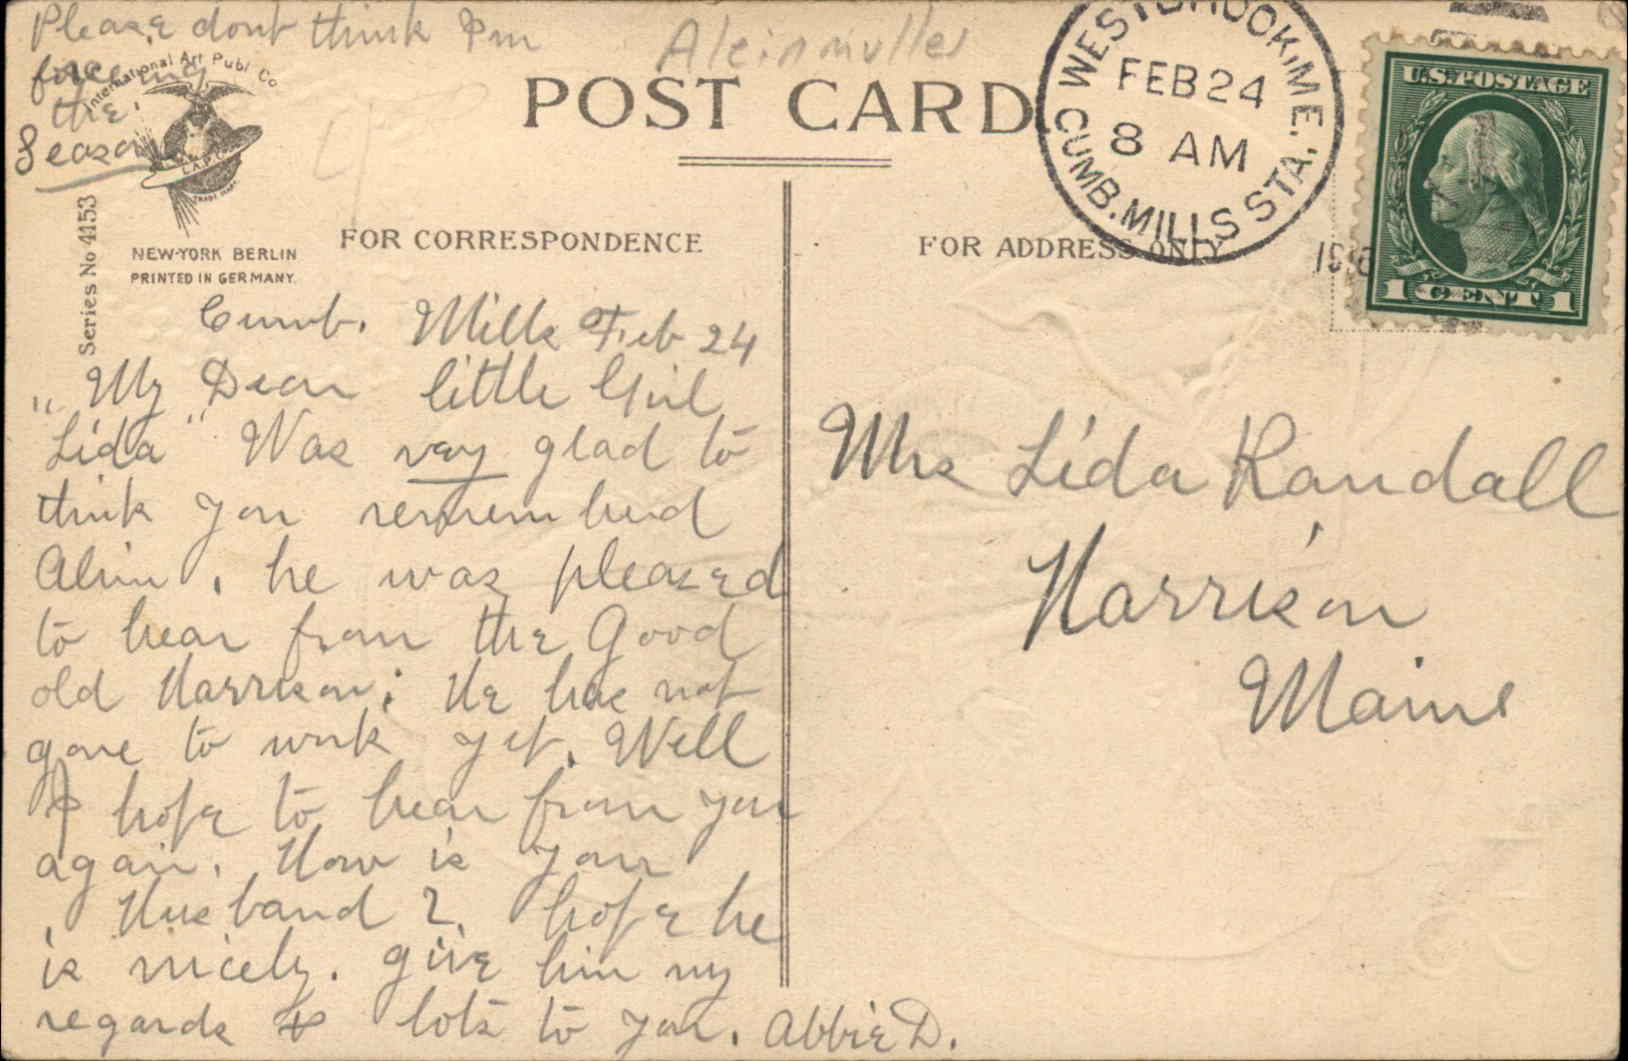 Please dont think I'm
forceing
the
Season
Aleinmuller
International Art Publ Co
I.A.P.Co
TRADE MARK
POST CARD
WESTBROOK, ME.
FEB 24
8 AM
CUMB. MILLS STA.
U.S. POSTAGE
1 CENT 1
Series No 4153
NEW-YORK BERLIN
PRINTED IN GERMANY.
FOR CORRESPONDENCE
FOR ADDRESS ONLY
Cumb. Mills Feb 24
"My Dear little Girl
Lida" Was very glad to
think you rememberd
Alvin. he was pleased
to hear from the good
old Harrison; He has not
gone to work yet. Well
I hope to hear from you
again. How is your
Husband? hope he
is nicely. give him my
regards & lots to you. Abbie D.
Mrs Lida Randall
Harrison
Maine